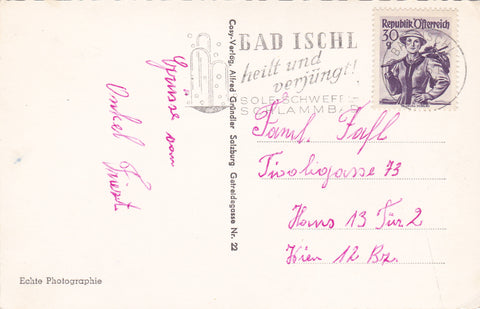 Grüsse vom
Onkel
Echte Photographie
Cosy-Verlag, Alfred Gründler Salzburg Getreidegasse Nr. 22
BAD ISCHL
heilt und
verjüngt!
SOLE SCHWEFEL
SCHLAMMBÄ
Republik Österreich
30
g
Faml.
Tivoligasse 73
Haus 13 Tür 2
Wien 12 Bz.